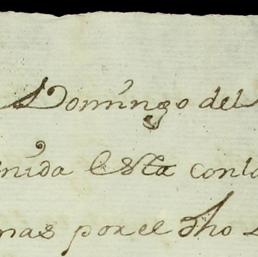 Domingo del
nida Esta conta
nas por el dho